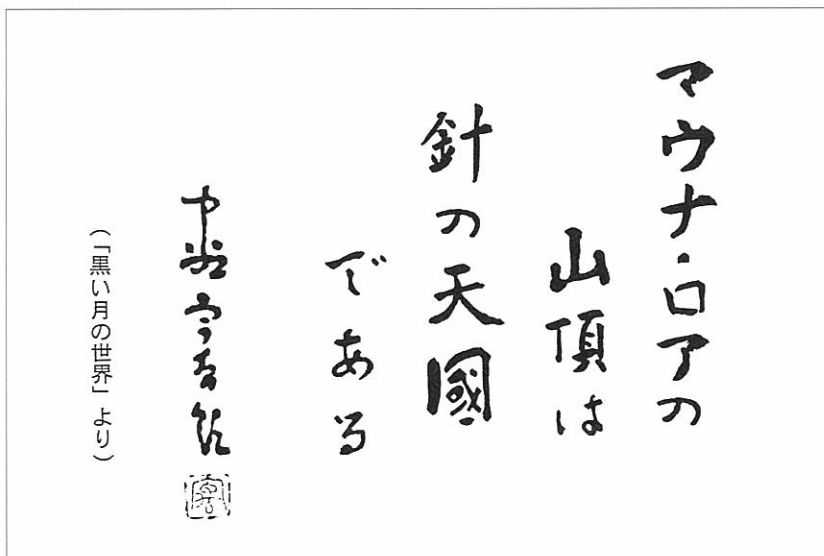 マウナ・ロアの
山頂は
針の天國
である
中谷宇吉郎
（「黒い月の世界」より）